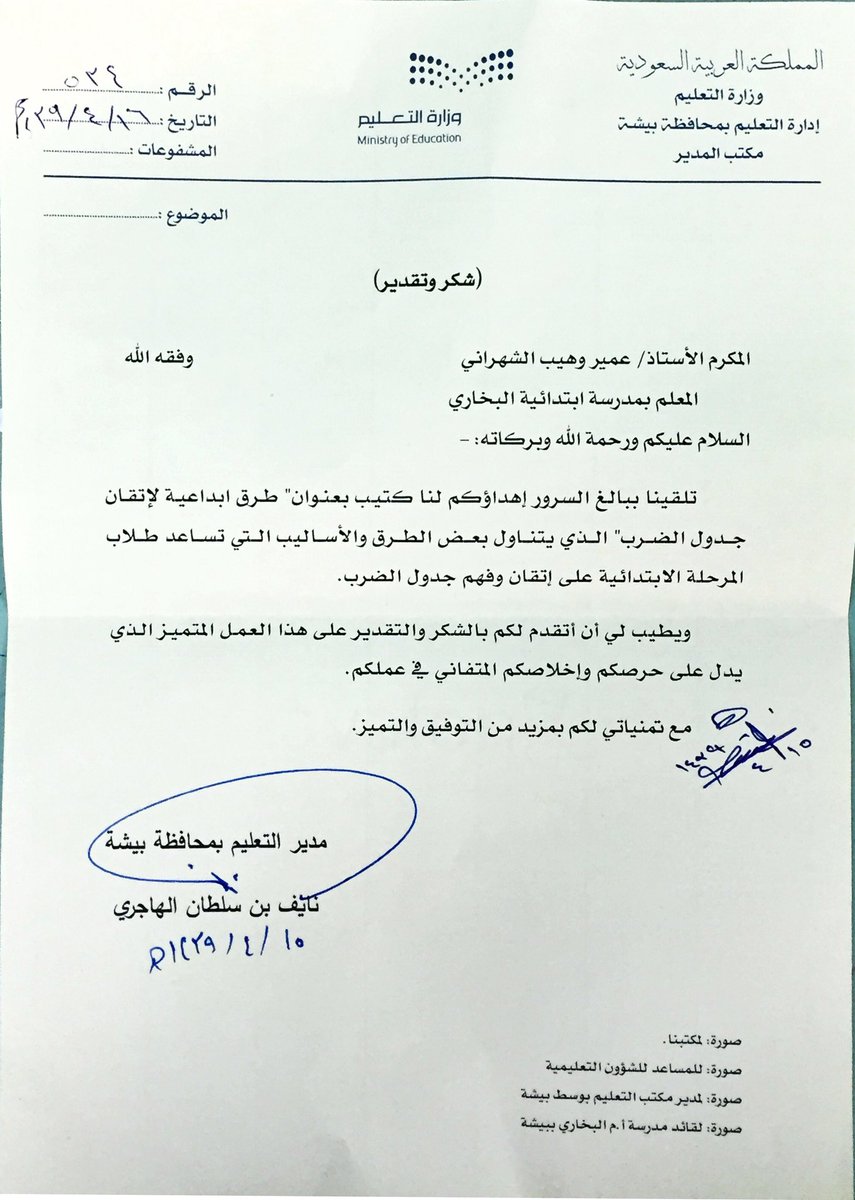 المملكة العربية السعودية
وزارة التعليم
إدارة التعليم بمحافظة بيشة
مكتب المدير
وزارة التعـليم
Ministry of Education
الرقـم : ٥٣٤
التاريخ : ١٤٣٩/٤/١٦
المشفوعات :
الموضوع :
(شكر وتقدير)
المكرم الأستاذ/ عمير وهيب الشهراني وفقه الله
المعلم بمدرسة ابتدائية البخاري
السلام عليكم ورحمة الله وبركاته: -
تلقينا ببالغ السرور إهداؤكم لنا كتيب بعنوان" طرق ابداعية لإتقان
جدول الضرب" الذي يتناول بعض الطرق والأساليب التي تساعد طلاب
المرحلة الابتدائية على إتقان وفهم جدول الضرب.
ويطيب لي أن أتقدم لكم بالشكر والتقدير على هذا العمل المتميز الذي
يدل على حرصكم وإخلاصكم المتفاني في عملكم.
مع تمنياتي لكم بمزيد من التوفيق والتميز.
١٥
٤
١٤٣٩
مدير التعليم بمحافظة بيشة
نايف بن سلطان الهاجري
١٤٣٩/٤/١٥
صورة: لمكتبنا.
صورة: للمساعد للشؤون التعليمية
صورة: لمدير مكتب التعليم بوسط بيشة
صورة: لقائد مدرسة أ.م البخاري ببيشة